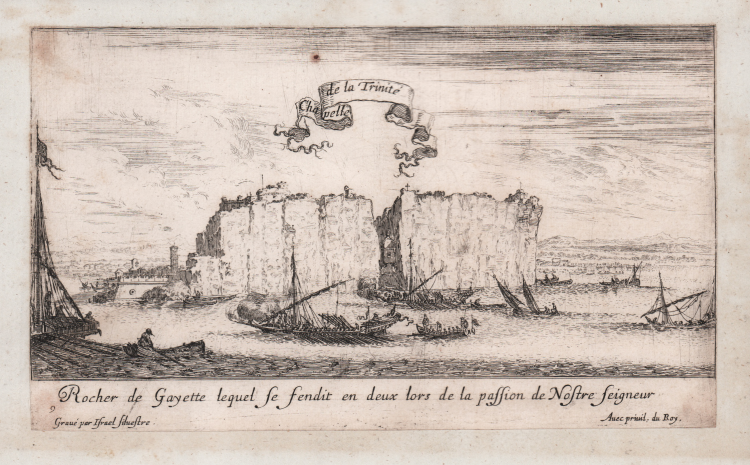 de la Trinité
Chapelle
Rocher de Gayette lequel se fendit en deux lors de la passion de Nostre seigneur
Gravé par Israel silvestre
Avec privil. du Roy.